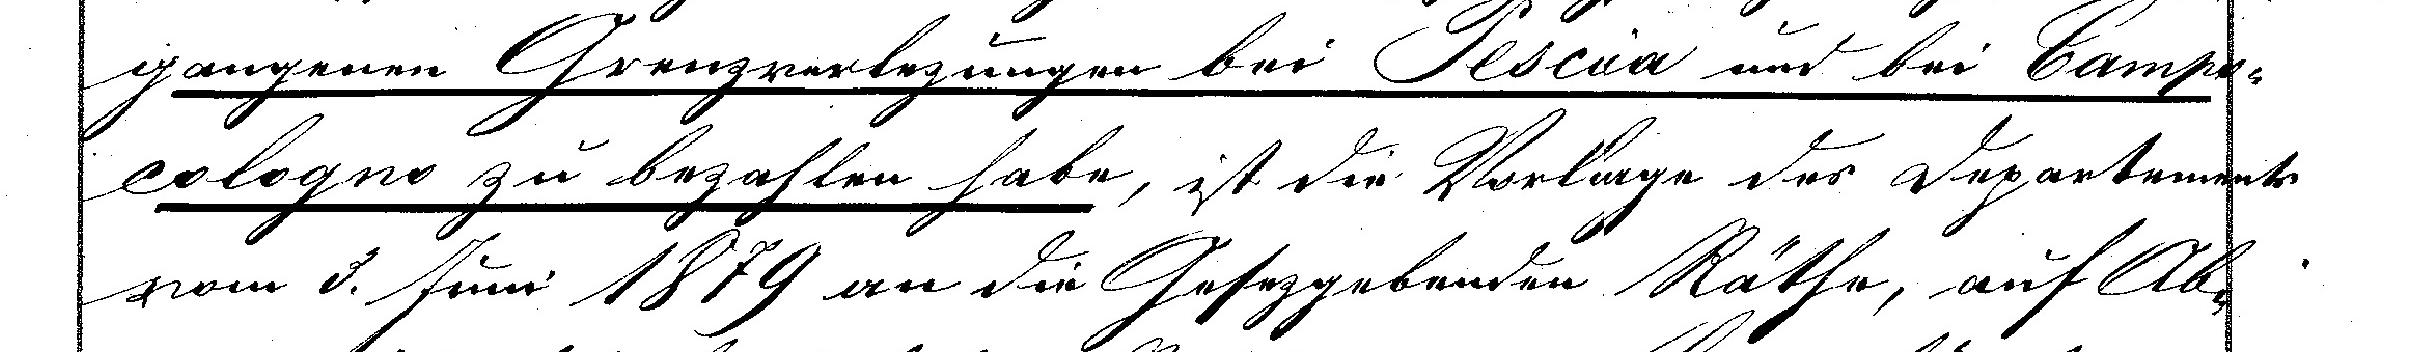 gangenen Grenzverlezungen bei Pescia und bei Campo-
cologno zu bezahlen habe, ist die Vorlage des Departements
vom 3. Juni 1879 an die Gesezgebenden Räthe, auf Ab-